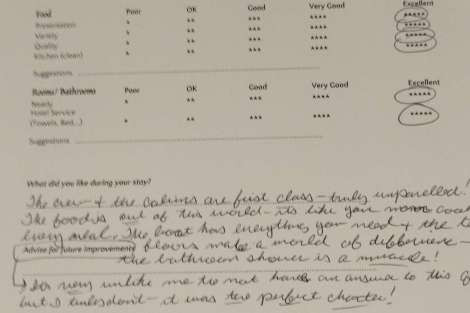 Food Poor OK Good Very Good Excellent
Presentation * ** *** **** *****
Variety * ** *** **** *****
Quality * ** *** **** *****
Kitchen (clean) * ** *** **** *****
Suggestions
Rooms/ Bathrooms Poor OK Good Very Good Excellent
Ready * ** *** **** *****
Hotel Service
(Towels, Bed,..) * ** *** **** *****
Suggestions
What did you like during your stay?
The crew + the cabins are first class - truly unparelled!
The food is out of this world - its like your
every meal. The boat has everything you need + the
Advise for future improvements floors make a world of difference -
the bathroom shower is a muracle!
very unlike me to not have an answer to this
but I - it was the perfect charter!